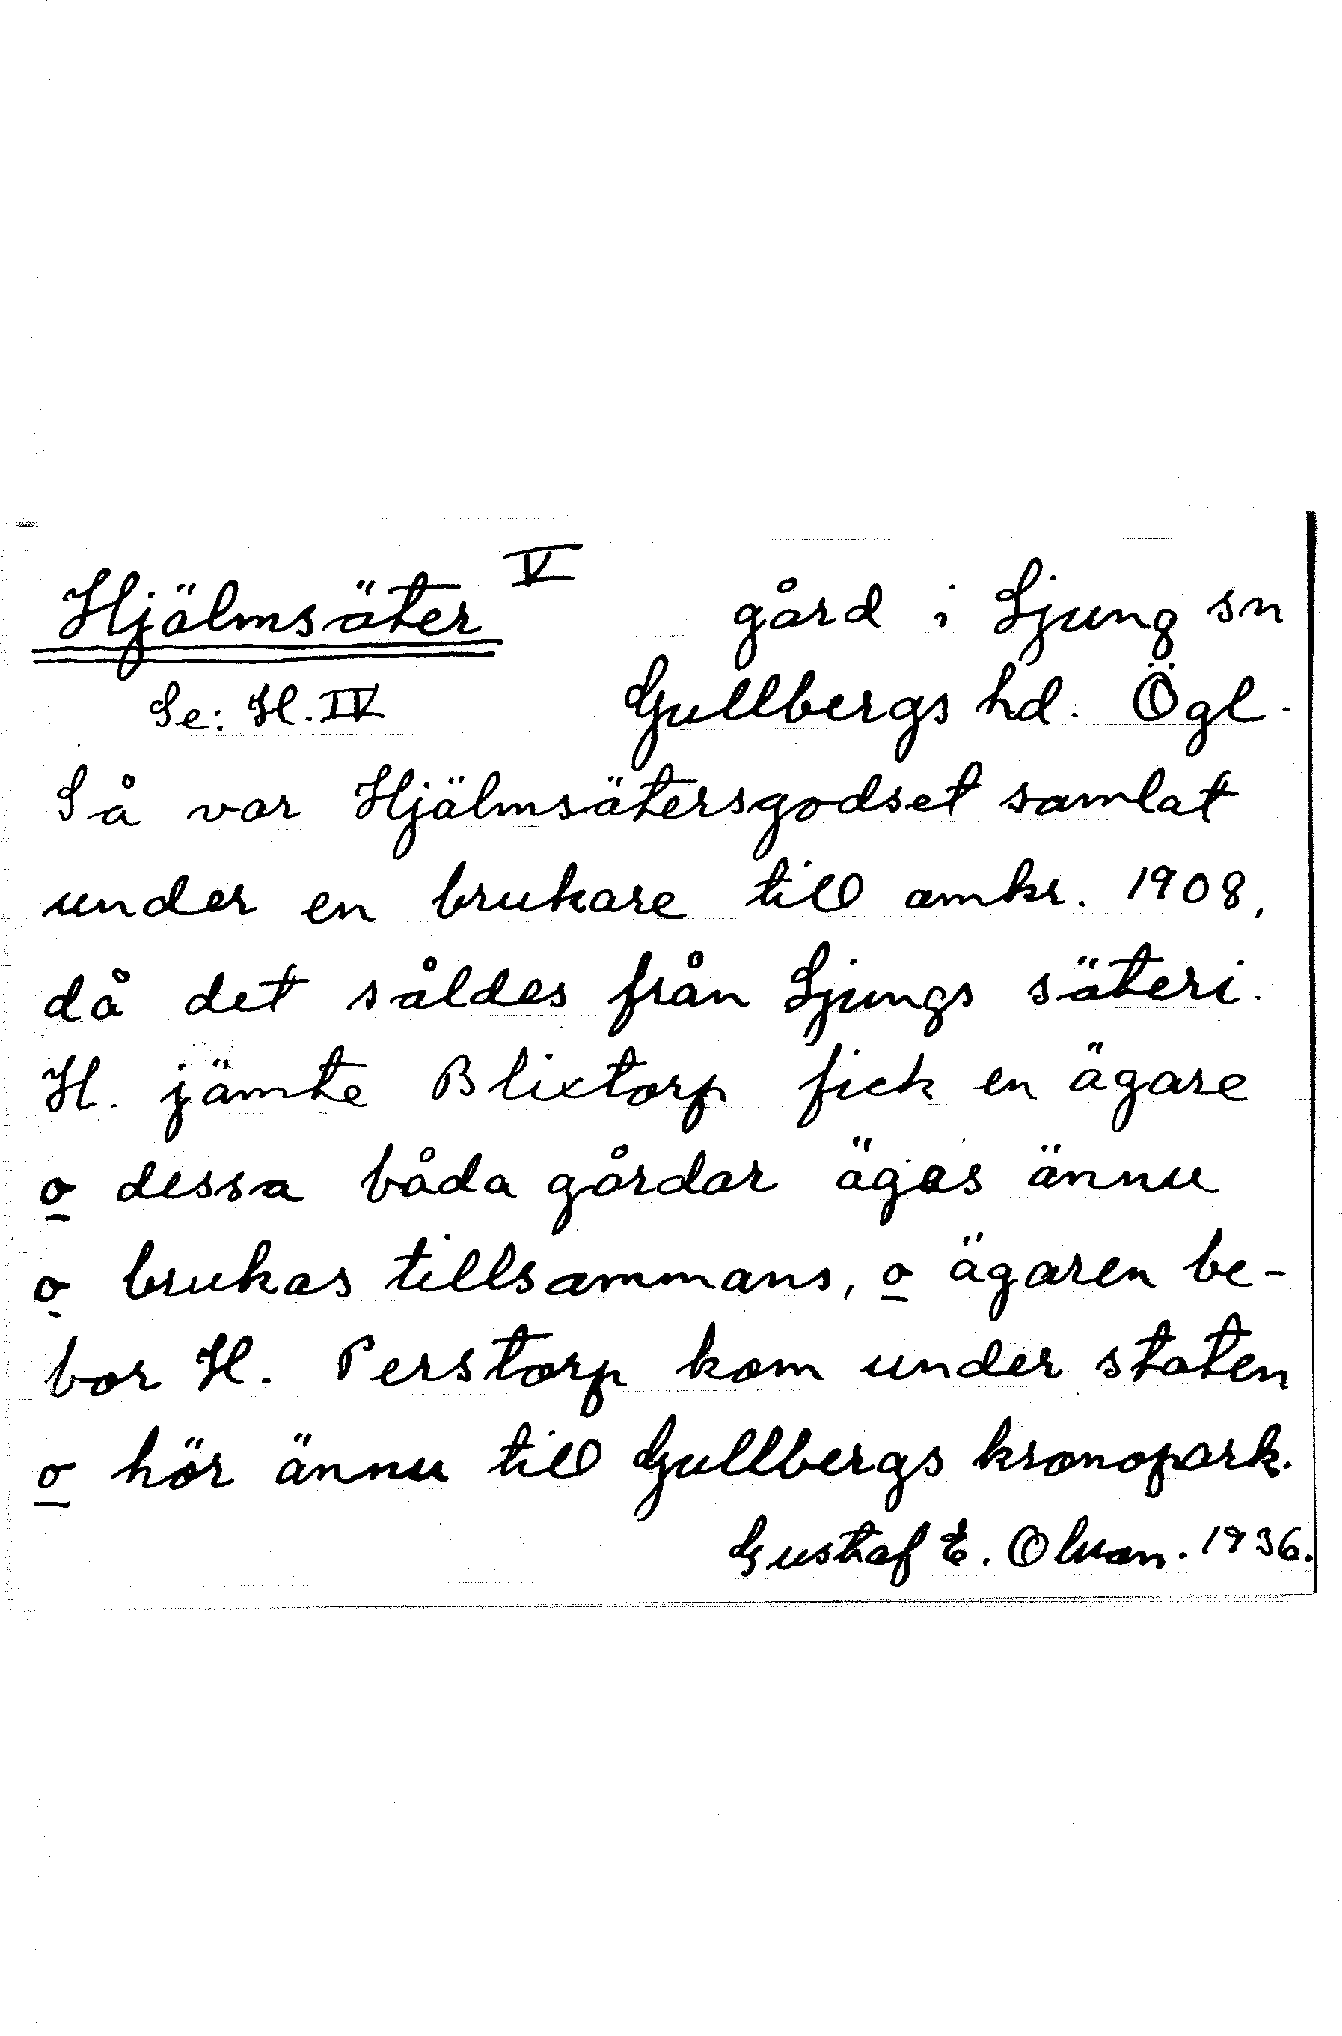 Hjälmsäter V gård i Ljung sn
Se: H. IV Gullbergs hd. Ögl.
Så var Hjälmsätersgodset samlat
under en brukare till omkr. 1908,
då det såldes från Ljungs säteri.
H. jämte Blixtorp fick en ägare
o dessa båda gårdar ägas ännu
o brukas tillsammans, o ägaren be-
bor H. Perstorp kom under staten
o hör ännu till Gullbergs kronopark.
Gustaf E. 1936.